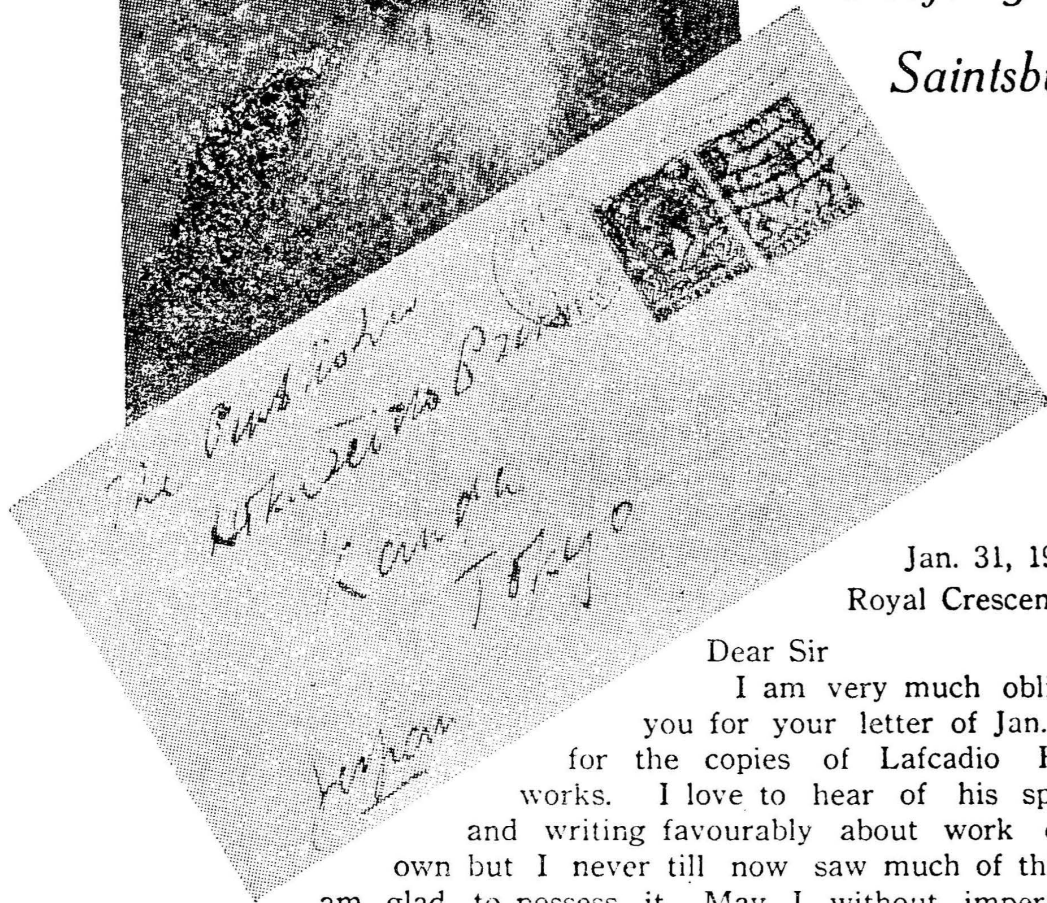 Saintsbu
The
Kanda
Tokyo
Japan
Jan. 31, 19
Royal Crescen
Dear Sir
I am very much obli
you for your letter of Jan.
for the copies of Lafcadio H
works. I love to hear of his sp
and writing favourably about work o
own but I never till now saw much of th
am glad to possess it. May I without imper